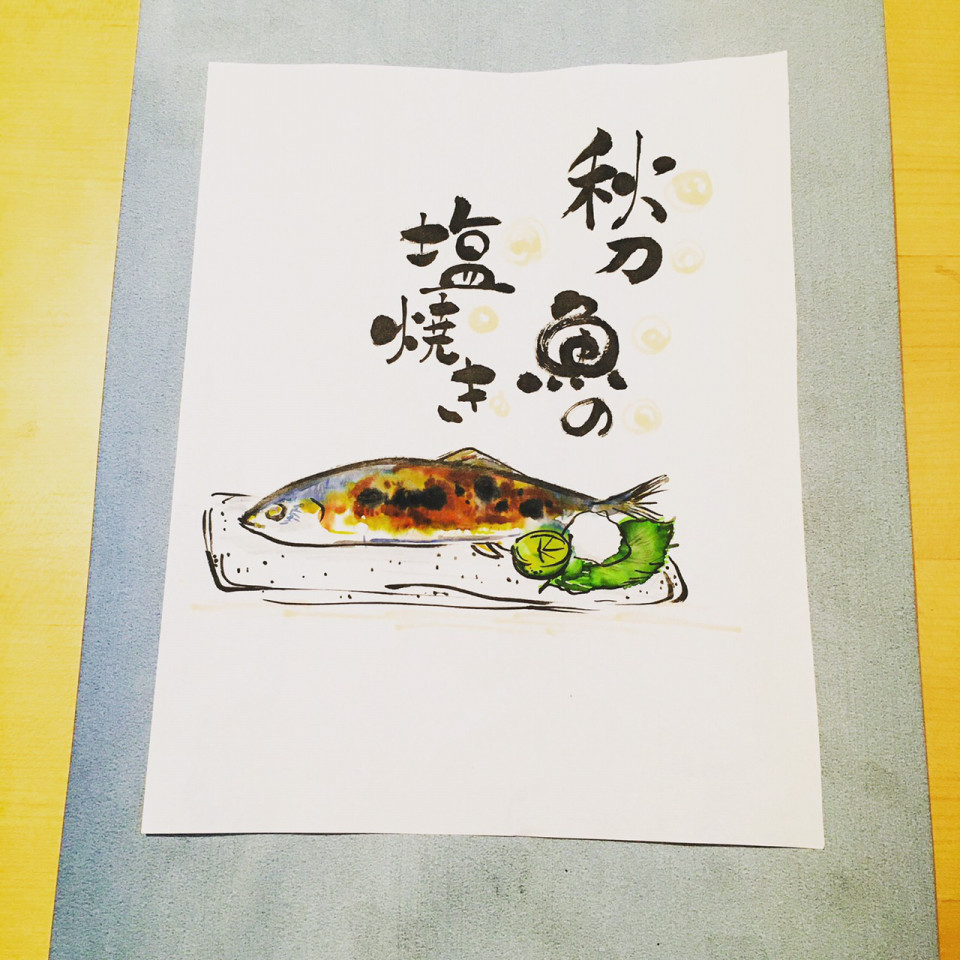 秋刀魚の
塩焼き